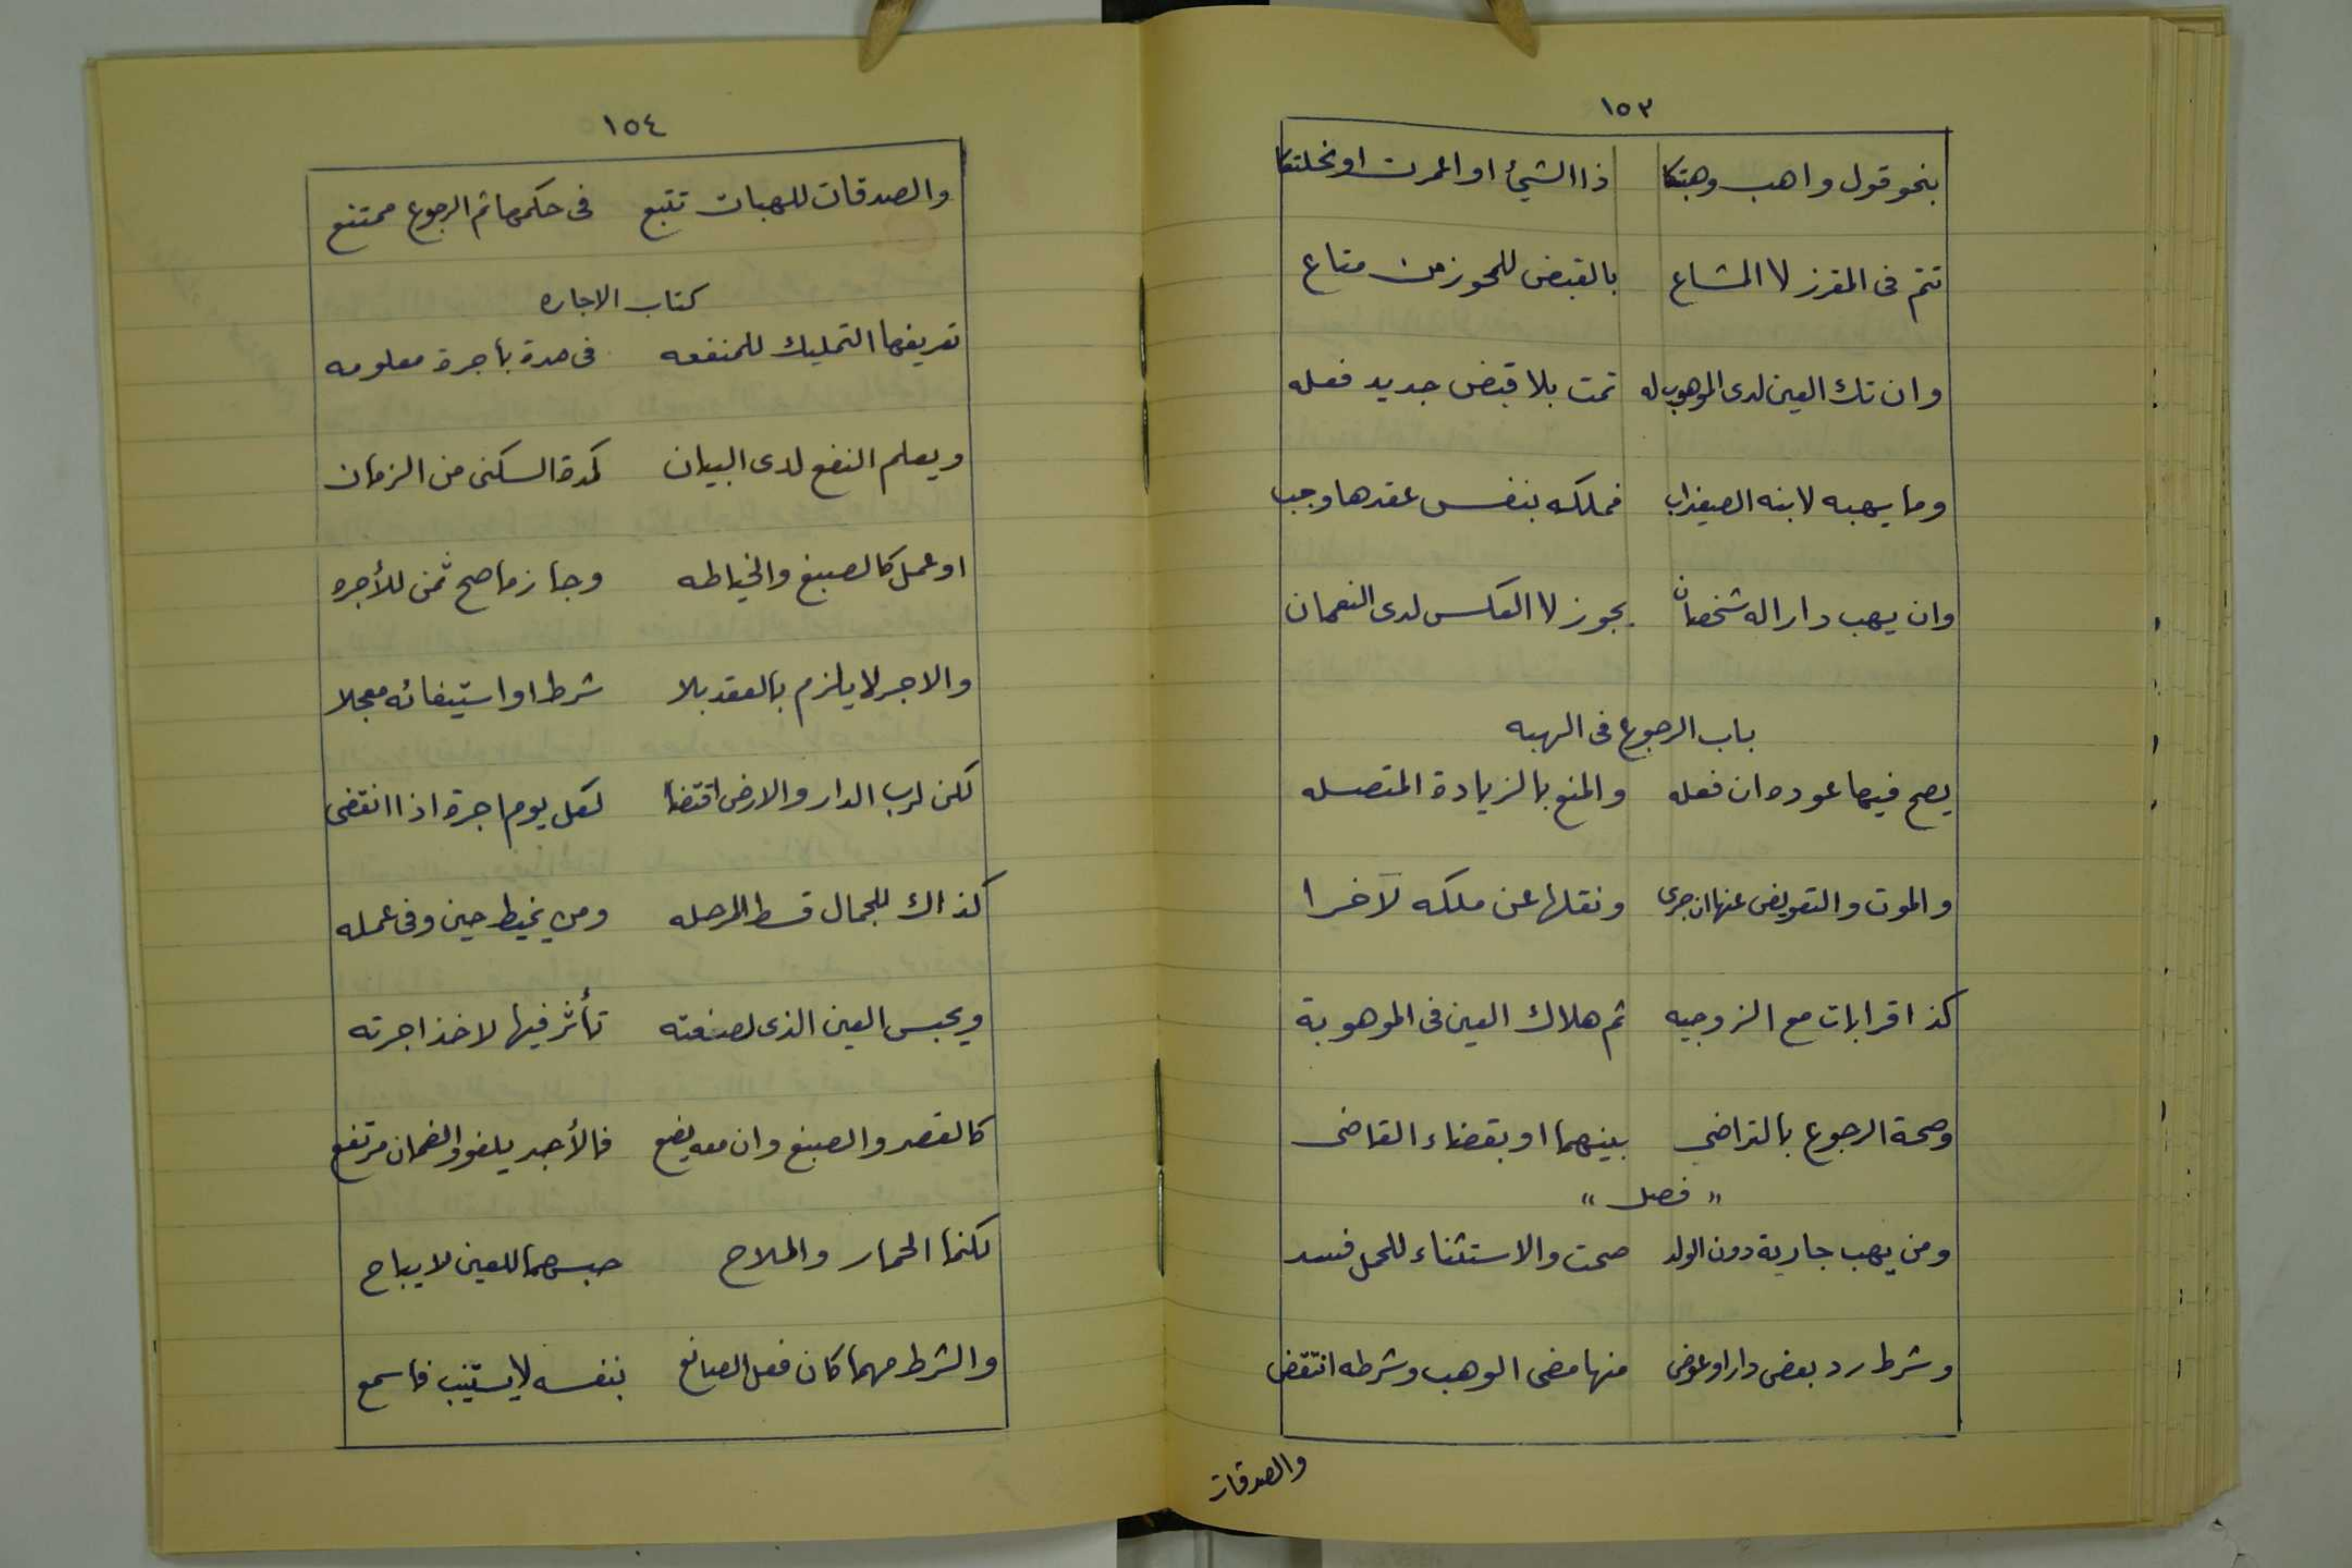 ١٥٣
بنحو قول واهب وهبتكا ذا الشيئ او اعمرت او نحلتكا
تتم فى المفرز لا المشاع بالقبض للحوز من متاع
وان تك العين لدى الموهوب له تمت بلا قبض جديد فعله
وما يهبه لابنه الصغير اب فملكه بنفس عقدها وجب
وان يهب دارا له شخصان يجوز لا العكس لدى النعمان
باب الرجوع فى الهبه
يصح فيها عوده ان فعله والمنع بالزيادة المتصله
والموت والتعويض عنها ان جرى ونقلها عن ملكه لآخرا
كذا قرابات مع الزوجيه ثم هلاك العين فى الموهوبة
وصحة الرجوع بالتراضي بينهما او بقضاء القاضى
" فصل "
ومن يهب جارية دون الولد صحت والاستثناء للحمل فسد
وشرط رد بعض دار او عوض منها مضى الوهب وشرطه انتقض
والصدقات
١٥٤
والصدقات للهبات تتبع فى حكمها ثم الرجوع ممتنع
كتاب الاجاره
تعريفها التمليك للمنفعه فى مدة بأجرة معلومه
ويعلم النفع لدى البيان كمدة السكنى من الزمان
او عمل كالصبغ والخياطه وجاز ما صح ثمن للأجره
والاجر لا يلزم بالعقد بلا شرط او استيفائه معجلا
لكن لرب الدار والارض اقتضا لكل يوم اجرة اذا انقضى
كذاك للجمال قسط المرحله ومن يخيط حين وفى عمله
ويحبس العين الذى لصنعته تأثر فيها لاخذ اجرته
كالقصر والصبغ وان معه يضع فالأجر يلغو والضمان مرتفع
لكنما الحمار والملاح حبسهما للعين لا يباح
والشرط مهما كان فعل الصانع بنفسه لا يستنيب فاسمع